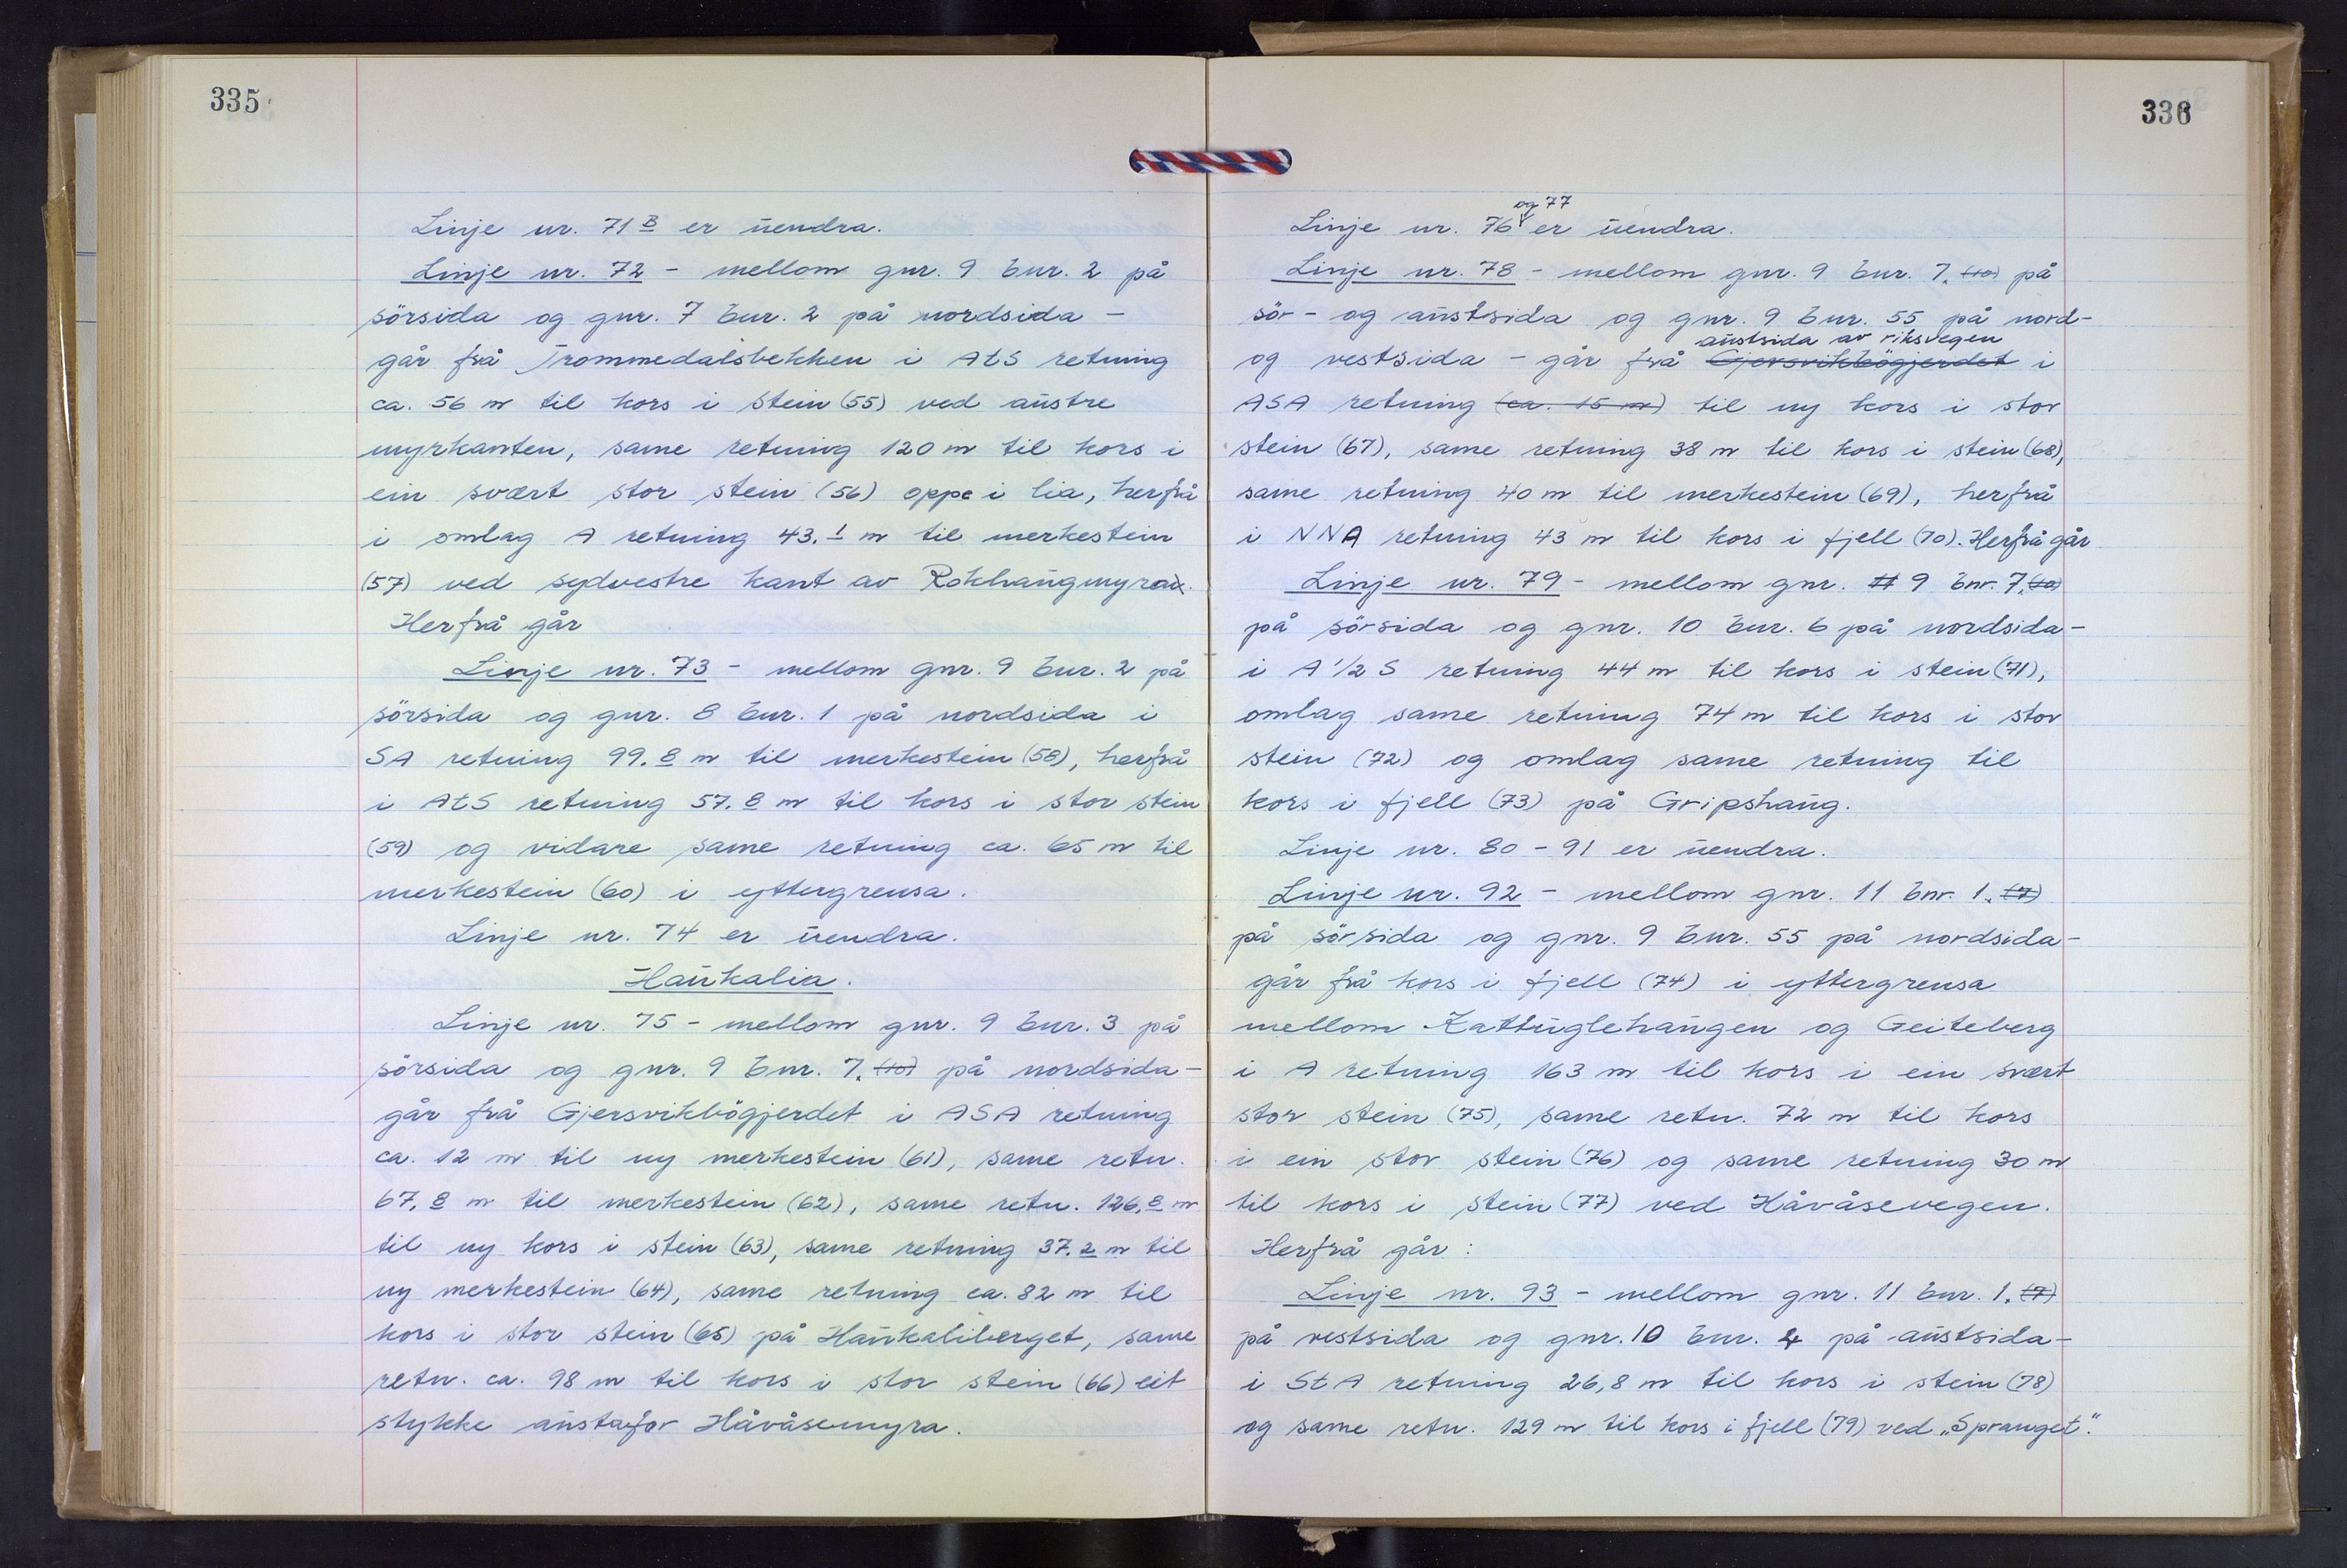 335
Linje nr. 71 B er uendra.
Linje nr. 72 - mellom gnr. 9 bnr. 2 på
sörsida og gnr. 7 bnr. 2 på nordsida -
går frå Trommedalsbekken i AtS retning
ca. 56 m til kors i stein (55) ved austre
myrkanten, same retning 120 m til kors i
ein svært stor stein (56) oppe i lia, herfrå
i omlag A retning 43.1 m til merkestein
(57) ved sydvestre kant av Rokhaugmyra.
Herfrå går
Linje nr. 73 - mellom gnr. 9 bnr. 2 på
sörsida og gnr. 8 bnr. 1 på nordsida i
SA retning 99.8 m til merkestein (58), herfrå
i AtS retning 57.8 m til kors i stor stein
(59) og vidare same retning ca. 65 m til
merkestein (60) i yttergrensa.
Linje nr. 74 er uendra.
Haukalia.
Linje nr. 75 - mellom gnr. 9 bnr. 3 på
sörsida og gnr. 9 bnr. 7. (10) på nordsida -
går frå Gjersvikbögjerdet i ASA retning
ca. 12 m til ny merkestein (61), same retn.
67.8 m til merkestein (62), same retn. 126.8 m
til ny kors i stein (63), same retning 37.2 m til
ny merkestein (64), same retning ca. 82 m til
kors i stor stein (65) på Haukaliberget, same
retn. ca. 98 m til kors i stor stein (66) eit
stykke austafor Håvåsemyra.
336
og 77
Linje nr. 76 er uendra.
Linje nr. 78 - mellom gnr. 9 bnr. 7. (10) på
sör- og austsida og gnr. 9 bnr. 55 på nord-
austsida av riksvegen
og vestsida - går frå Gjersvikbögjerdet i
ASA retning (ca. 15 m) til ny kors i stor
stein (67), same retning 38 m til kors i stein (68),
same retning 40 m til merkestein (69), herfrå
i NNA retning 43 m til kors i fjell (70). Herfrå går
Linje nr. 79 - mellom gnr. 11 9 bnr. 7. (10)
på sörsida og gnr. 10 bnr. 6 på nordsida -
i A 1/2 S retning 44 m til kors i stein (71),
omlag same retning 74 m til kors i stor
stein (72) og omlag same retning til
kors i fjell (73) på Gripshaug.
Linje nr. 80 - 91 er uendra.
Linje nr. 92 - mellom gnr. 11 bnr. 1. (7)
på sörsida og gnr. 9 bnr. 55 på nordsida -
går frå kors i fjell (74) i yttergrensa
mellom Kattuglehaugen og Geiteberg
i A retning 163 m til kors i ein svært
stor stein (75), same retn. 72 m til kors
i ein stor stein (76) og same retning 30 m
til kors i stein (77) ved Håvåsevegen.
Herfrå går:
Linje nr. 93 - mellom gnr. 11 bnr. 1. (7)
på vestsida og gnr. 10 bnr. 4 på austsida -
i StA retning 26,8 m til kors i stein (78)
og same retn. 129 m til kors i fjell (79) ved „Spranget".